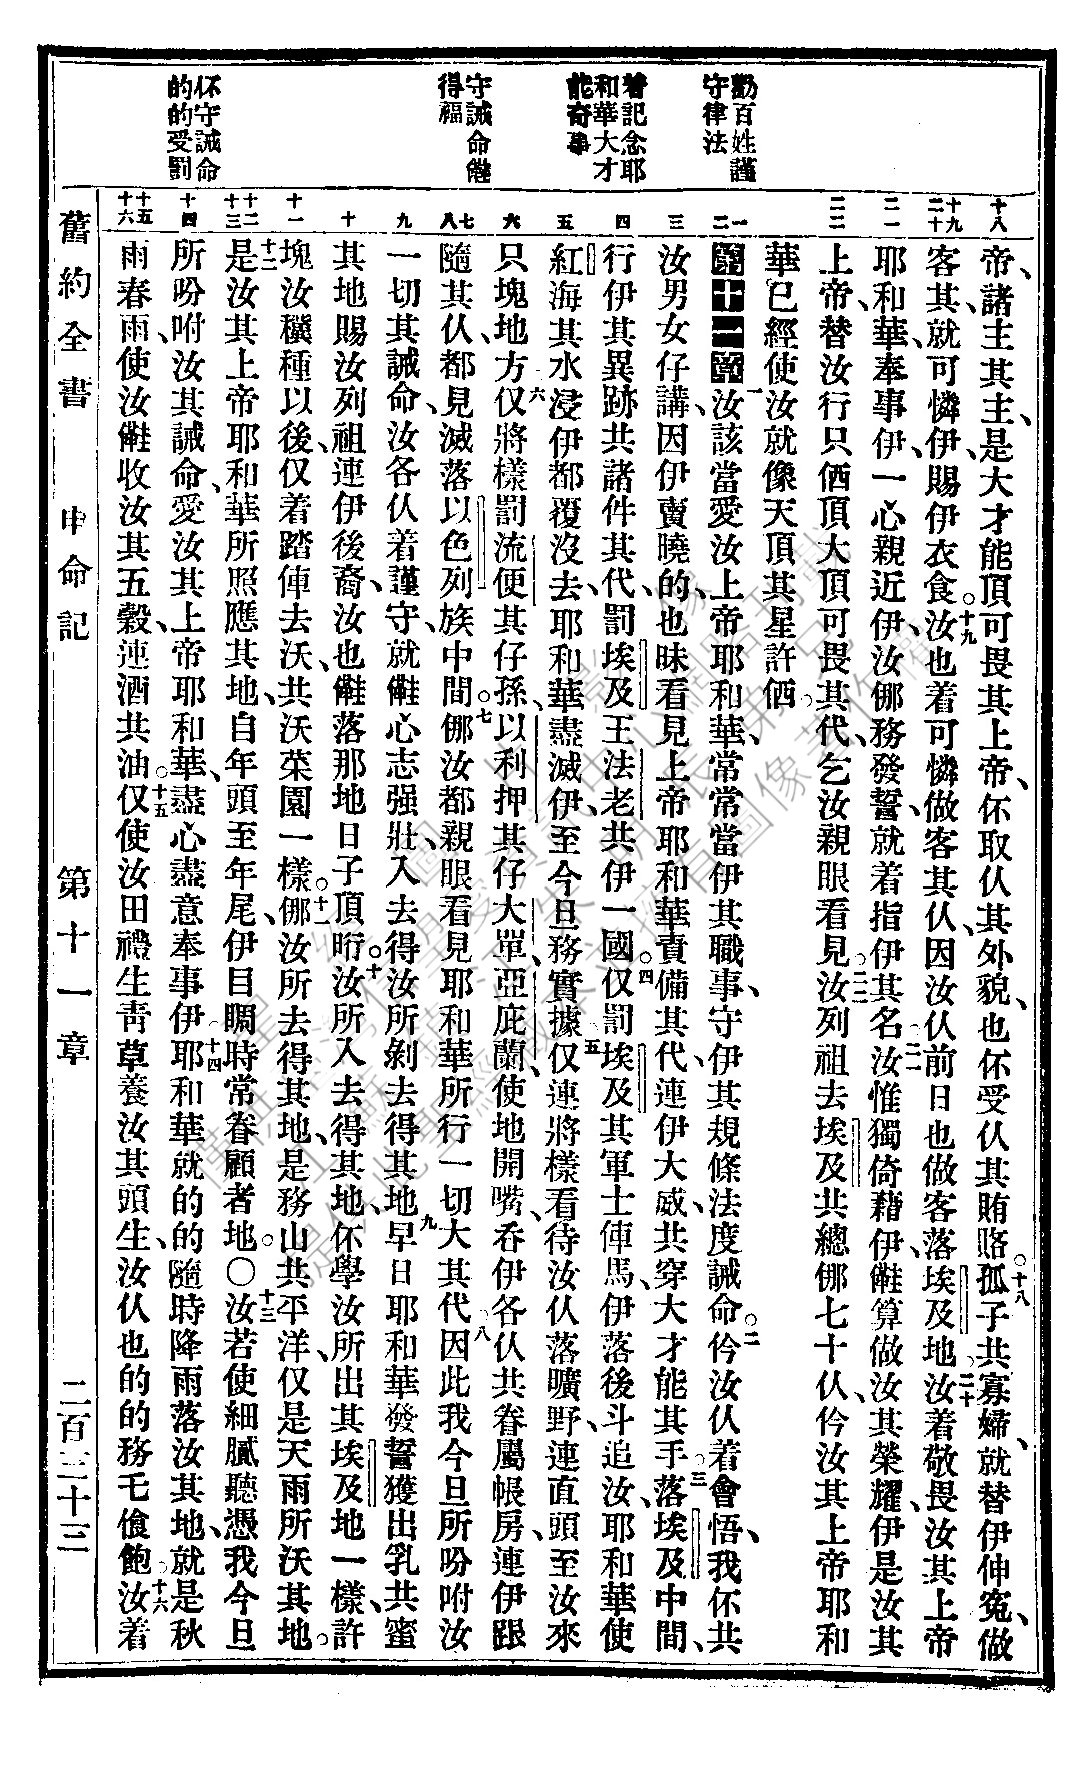 勸百姓謹
守律法
着記念耶
和華大才
能奇事
守誡命𠆧
得福
伓守誡命
的的受罰
十八
十九
二十
二一
二二
一
二
三
四
五
六
七
八
九
十
十一
十二
十三
十四
十五
十六
帝、諸主其主、是大才能頂可畏其上帝、伓取仈其外貌、也伓受仈其賄賂。十八孤子共寡婦、就替伊伸寃、做
客其、就可憐伊、賜伊衣食。十九汝也着可憐做客其仈、因汝仈前日也做客落埃及地。二十汝着敬畏汝其上帝
耶和華、奉事伊、一心親近伊、汝𠆧務發誓、就着指伊其名。二一汝惟獨倚藉伊、𠆧算做汝其榮耀、伊是汝其
上帝、替汝行只侕頂大頂可畏其代、乞汝親眼看見。二二汝列祖去埃及共總𠆧七十仈、仱汝其上帝耶和
華已經使汝就像天頂其星許侕。
第十一章一汝該當愛汝上帝耶和華、常常當伊其職事、守伊其規條法度誡命。二仱汝仈着會悟、我伓共
汝男女仔講、因伊賣曉的、也昧看見上帝耶和華責備其代、連伊大威共穿大才能其手。三落埃及中間、
行伊其異跡共諸件其代、罰埃及王法老共伊一國。四仅罰埃及其軍士俥馬、伊落後斗追汝、耶和華使
紅海其水浸伊都覆沒去、耶和華盡滅伊、至今旦務實據。五仅連將樣看待汝仈落曠野、連直頭至汝來
只塊地方。六仅將樣罰流便其仔孫、以利押其仔大單、亞庇蘭、使地開嘴、吞伊各仈共眷屬帳房、連伊跟
隨其仈、都見滅落以色列族中間。七𠆧汝都親眼看見耶和華所行一切大其代。八因此我今旦所吩咐汝
一切其誡命、汝各仈着謹守、就𠆧心志强壯、入去得汝所剝去得其地。九早日耶和華發誓獲出乳共蜜
其地賜汝列祖連伊後裔、汝也𠆧落那地日子頂㫰。十汝所入去得其地、伓學汝所出其埃及地一樣、許
塊汝穬種以後、仅着踏俥去沃、共沃菜園一樣。十一𠆧汝所去得其地、是務山共平洋、仅是天雨所沃其地。
十二是汝其上帝耶和華所照應其地、自年頭至年尾、伊目睭時常眷顧者地。○十三汝若使細膩聽憑我今旦
所吩咐汝其誡命、愛汝其上帝耶和華、盡心盡意奉事伊。十四耶和華就的的隨時降雨落汝其地、就是秋
雨春雨、使汝𠆧收汝其五穀、連酒共油。十五仅使汝田禮生靑草養汝其頭生、汝仈也的的務乇飡飽。十六汝着
舊約全書　申命記　第十一章　二百三十三